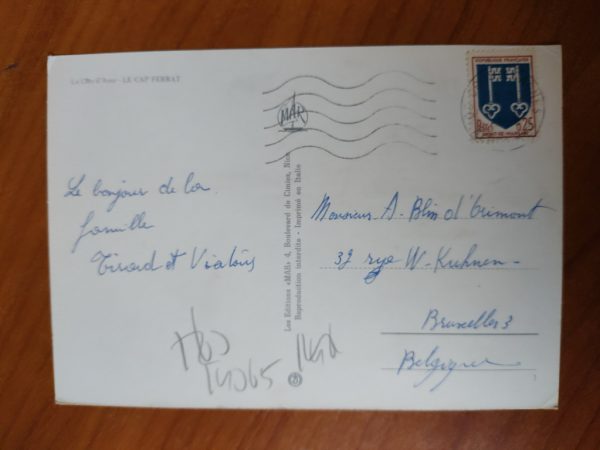 La Côte d'Azur - LE CAP FERRAT
MAR
REPUBLIQUE FRANÇAISE
Postes 0,25
MONT-DE-MARSAN
Le bonjour de la
famille
Tirard et
Monsieur A. Blin d'Orimont
37 rue W. Kuhnen -
Bruxelles 3
Belgique
Les Editions «MAR» 4, Boulevard de Cimiez, Nice
Reproduction interdite - Imprimé en Italie